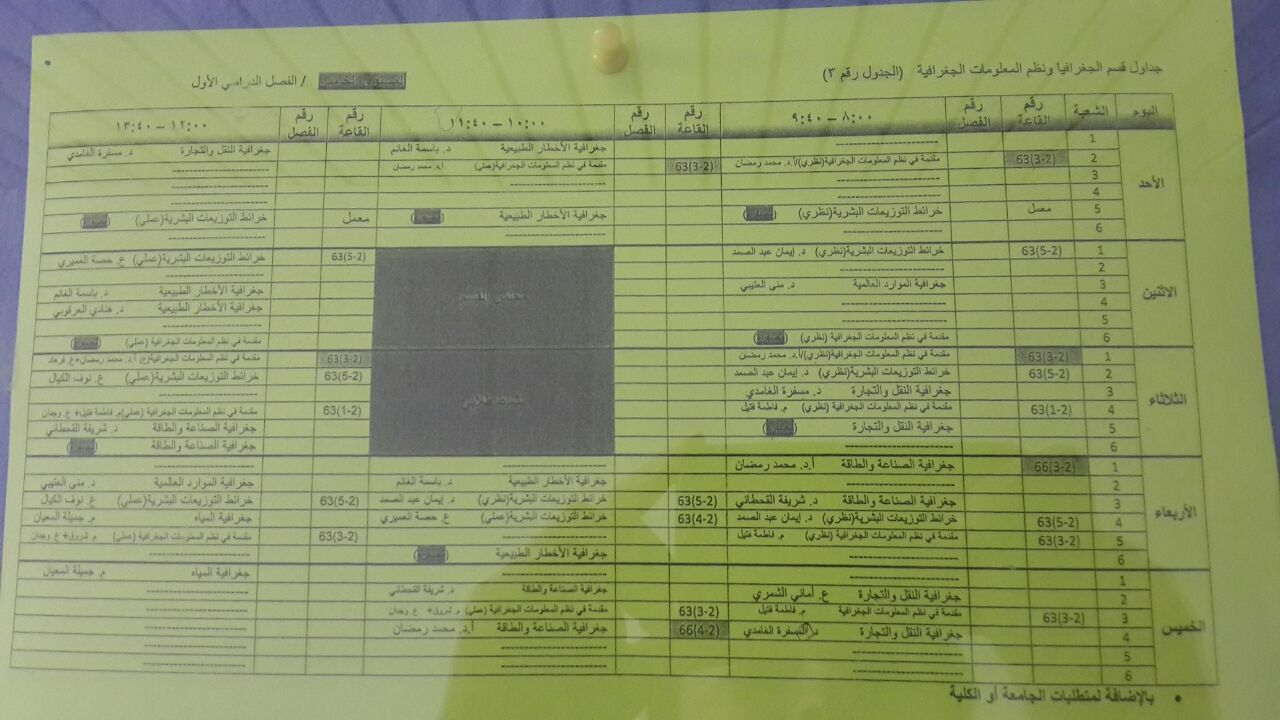 جداول قسم الجغرافيا ونظم المعلومات الجغرافية (الجدول رقم ٣) المستوى الخامس / الفصل الدراسي الأول
اليوم الشعبة رقم القاعة رقم الفصل ٨:٠٠ – ٩:٤٠ رقم القاعة رقم الفصل ١٠:٠٠ – ١١:٤٠ رقم القاعة رقم الفصل ١٢:٠٠ – ١٣:٤٠
الأحد
1 جغرافية الأخطار الطبيعية د. باسمة الغانم جغرافية النقل والتجارة د. مسفرة الغامدي
2 63(3-2) مقدمة في نظم المعلومات الجغرافية(نظري)/أ.د. محمد رمضان 63(3-2) مقدمة في نظم المعلومات الجغرافية(عملي) أ.د محمد رمضان
3
4
5 معمل خرائط التوزيعات البشرية(نظري) جغرافية الأخطار الطبيعية معمل خرائط التوزيعات البشرية(عملي)
6
الاثنين
1 63(5-2) خرائط التوزيعات البشرية(نظري) د. إيمان عبد الصمد 63(5-2) خرائط التوزيعات البشرية(عملي) ع. حصة العميري
2
3 جغرافية الموارد العالمية د. منى العتيبي جغرافية الأخطار الطبيعية د. باسمة الغانم
4 جغرافية الأخطار الطبيعية د. هنادي العرقوبي
5
6 مقدمة في نظم المعلومات الجغرافية (نظري) مقدمة في نظم المعلومات الجغرافية (عملي)
الثلاثاء
1 63(3-2) مقدمة في نظم المعلومات الجغرافية(نظري)/أ.د. محمد رمضان 63(3-2) مقدمة في نظم المعلومات الجغرافية(ع) أ.د. محمد رمضان+ع. فرهاد
2 63(5-2) خرائط التوزيعات البشرية(نظري) د. إيمان عبد الصمد 63(5-2) خرائط التوزيعات البشرية(عملي) ع. نوف الكيال
3 جغرافية النقل والتجارة د. مسفرة الغامدي
4 63(1-2) مقدمة في نظم المعلومات الجغرافية (نظري) م. فاطمة فتيل 63(1-2) مقدمة في نظم المعلومات الجغرافية (عملي)م. فاطمة فتيل+ ع. وجدان
5 جغرافية النقل والتجارة جغرافية الصناعة والطاقة د. شريفة القحطاني
6 جغرافية الصناعة والطاقة
الأربعاء
1 66(3-2) جغرافية الصناعة والطاقة أ.د. محمد رمضان
2 جغرافية الأخطار الطبيعية د. باسمة الغانم جغرافية الموارد العالمية د. منى العتيبي
3 جغرافية الصناعة والطاقة د. شريفة القحطاني 63(5-2) خرائط التوزيعات البشرية(نظري) د. إيمان عبد الصمد 63(5-2) خرائط التوزيعات البشرية(عملي) ع. نوف الكيال
4 63(5-2) خرائط التوزيعات البشرية(نظري) د. إيمان عبد الصمد 63(4-2) خرائط التوزيعات البشرية(عملي) ع. حصة العميري جغرافية المياه م. جميلة السعيان
5 63(3-2) مقدمة في نظم المعلومات الجغرافية (نظري) م. فاطمة فتيل 63(3-2) مقدمة في نظم المعلومات الجغرافية (عملي) م. شروق+ ع. وجدان
6 جغرافية الأخطار الطبيعية
الخميس
1 جغرافية المياه م. جميلة السعيان
2 جغرافية النقل والتجارة ع. أماني الشمري جغرافية الصناعة والطاقة د. شريفة القحطاني
3 63(3-2) مقدمة في نظم المعلومات الجغرافية م. فاطمة فتيل 63(3-2) مقدمة في نظم المعلومات الجغرافية (عملي) م. شروق+ ع. وجدان
4 جغرافية النقل والتجارة د. مسفرة الغامدي 66(4-2) جغرافية الصناعة والطاقة أ.د. محمد رمضان
5
6
• بالإضافة لمتطلبات الجامعة أو الكلية